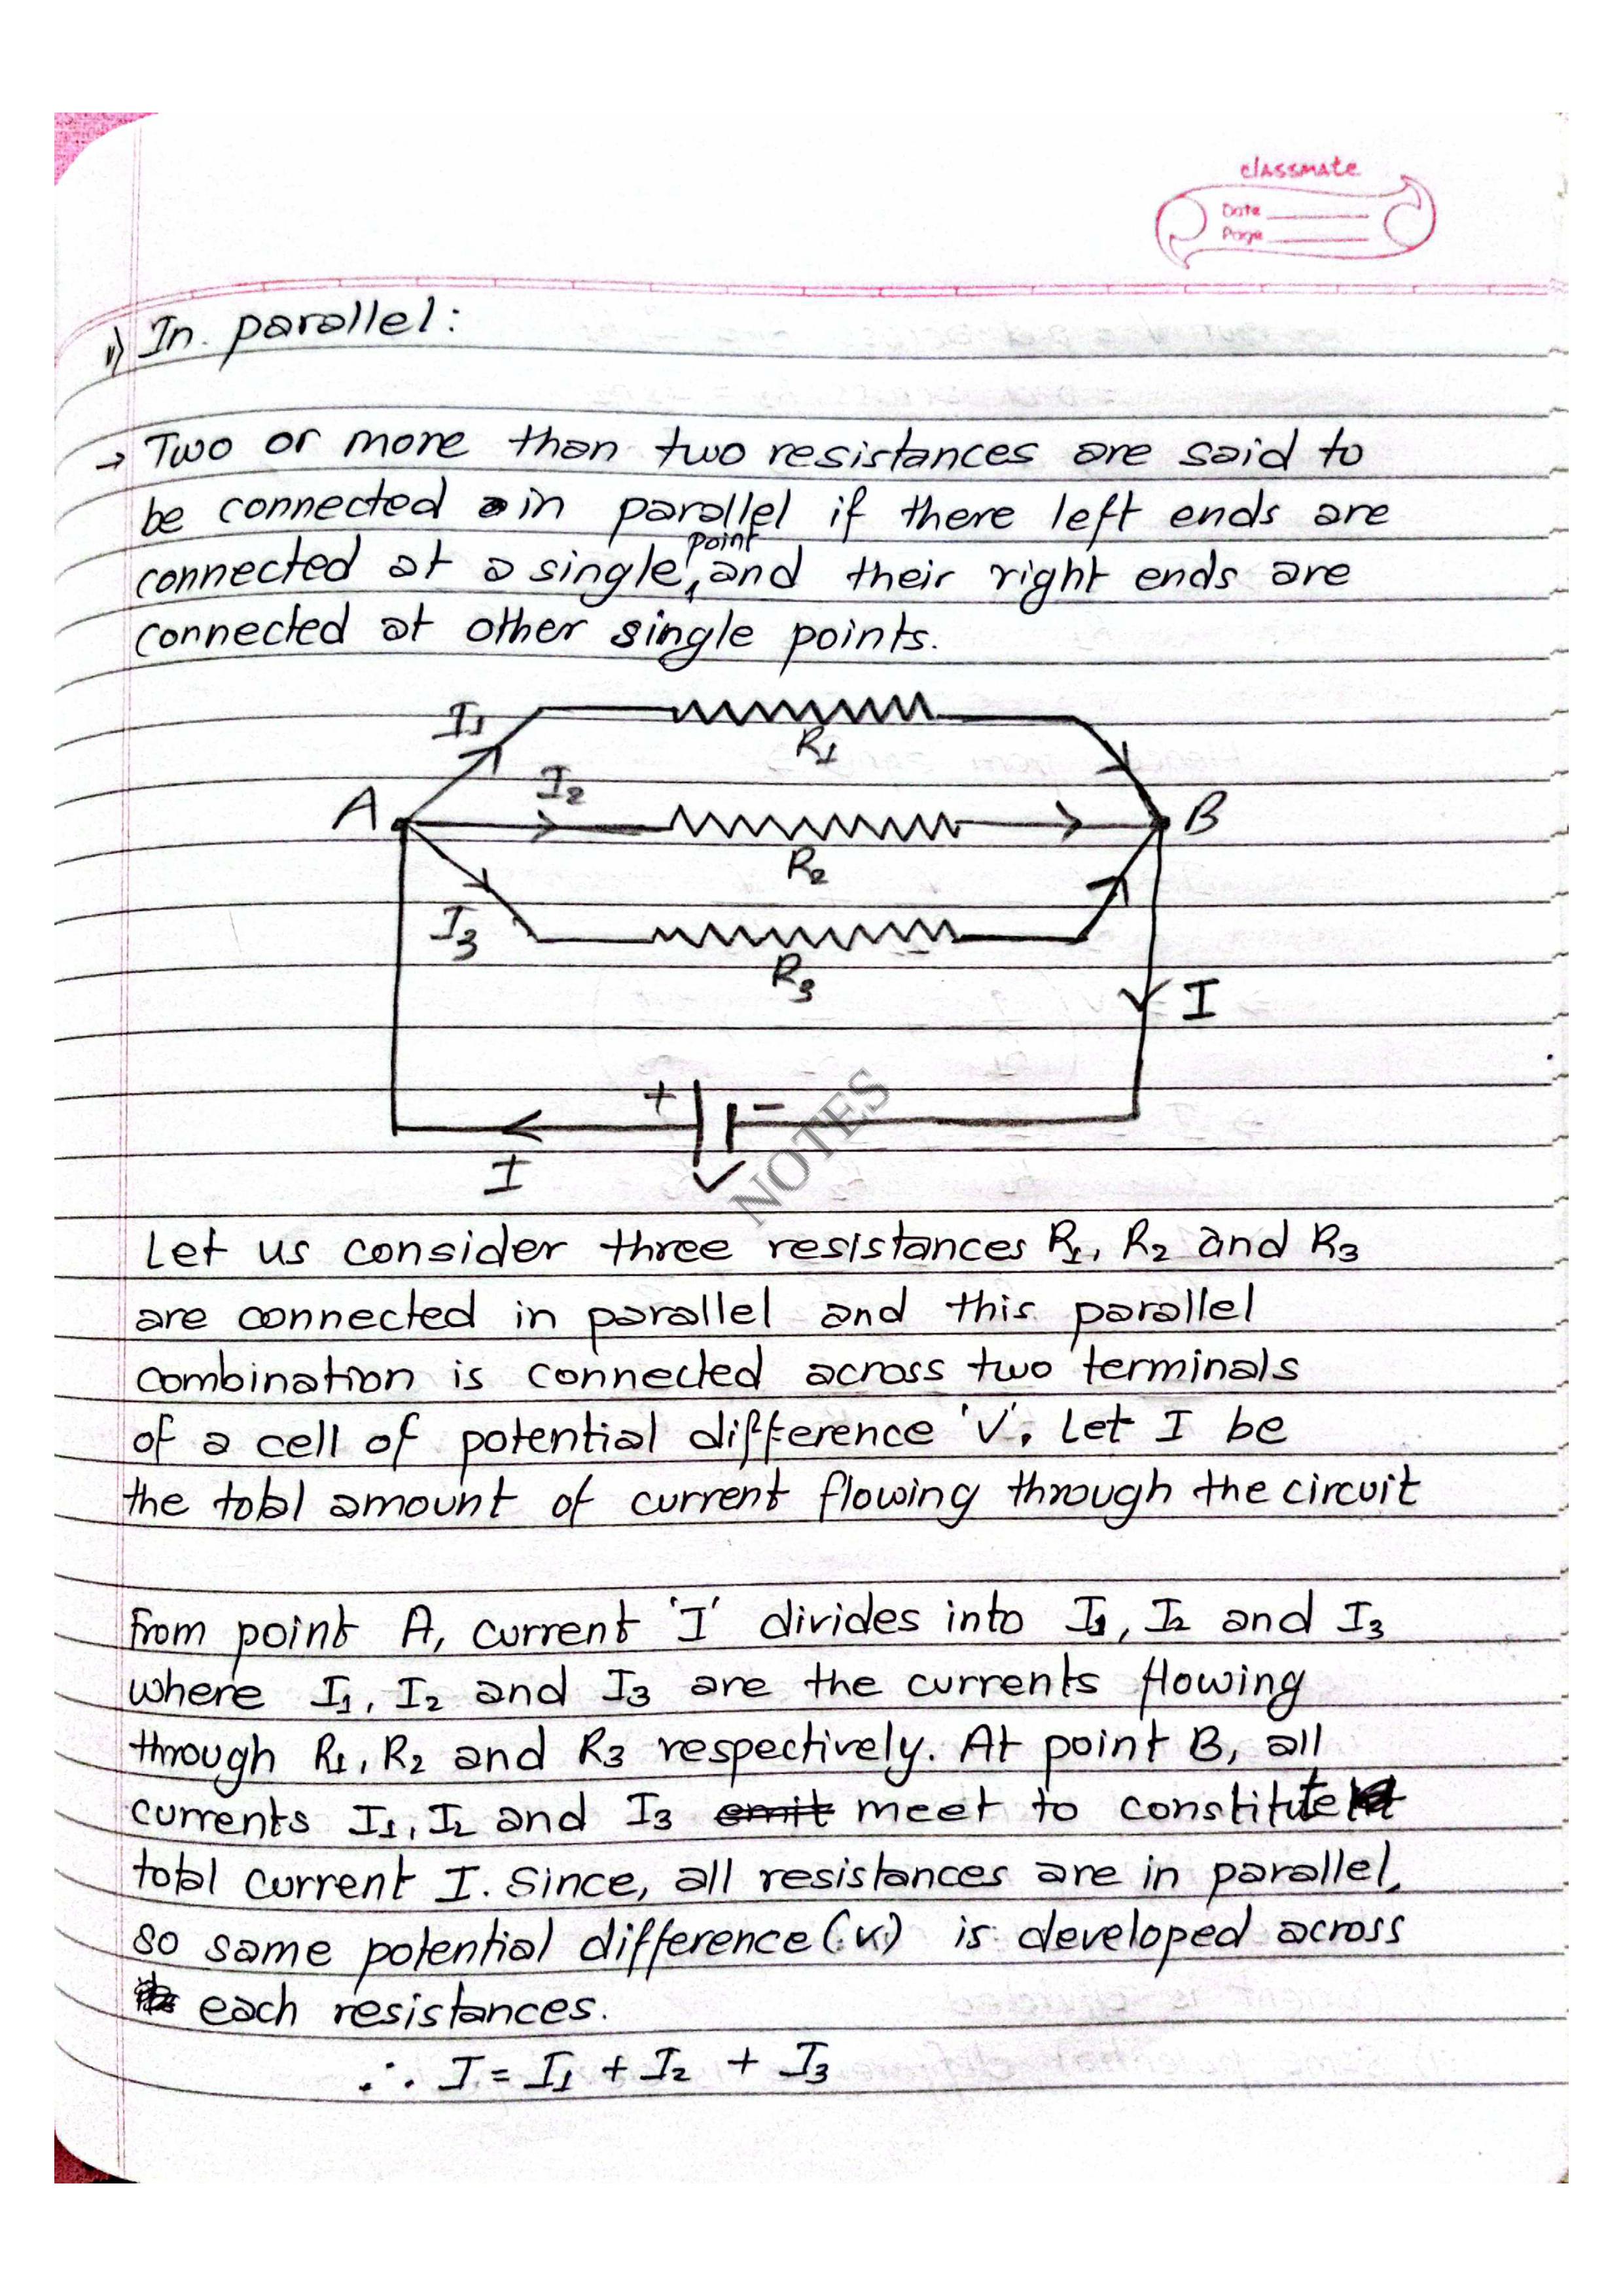 classmate
Date
Page
ii) In parallel:
→ Two or more than two resistances are said to
be connected in parallel if there left ends are
connected at a single point and their right ends are
connected at other single points.
I1
R1
A
I2
B
R2
I3
R3
I
+ -
I
V
NOTES
Let us consider three resistances R1, R2 and R3
are connected in parallel and this parallel
combination is connected across two terminals
of a cell of potential difference 'V'. Let I be
the total amount of current flowing through the circuit
From point A, current 'I' divides into I1, I2 and I3
where I1, I2 and I3 are the currents flowing
through R1, R2 and R3 respectively. At point B, all
currents I1, I2 and I3 emit meet to constitute
total current I. Since, all resistances are in parallel,
so same potential difference (V) is developed across
each resistances.
∴ I = I1 + I2 + I3